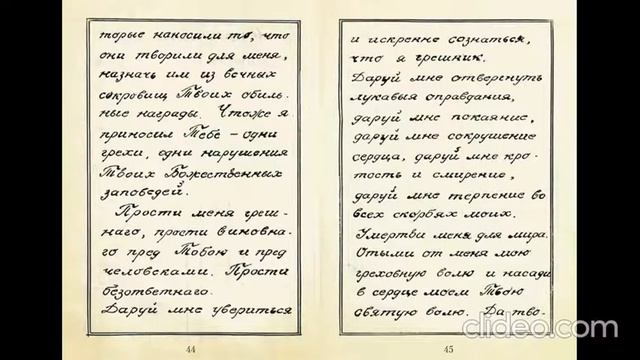 торые наносили то, что
они творили для меня,
назначь им из вечных
сокровищ Твоих обиль-
ные награды. Что же я
приносил Тебе – одни
грехи, одни нарушения
Твоих Божественных
заповедей.
Прости меня греш-
наго, прости виновна-
го пред Тобою и пред
человеками. Прости
безответнаго.
Даруй мне увериться
44
и искренне сознаться,
что я грешник.
Даруй мне отвергнуть
лукавыя оправдания,
даруй мне покаяние,
даруй мне сокрушение
сердца, даруй мне кро-
тость и смирение,
даруй мне терпение во
всех скорбях моих.
Умертви меня для мира.
Отыми от меня мою
греховную волю и насади
в сердце моем Твою
святую волю. Да тво-
45
clideo.com